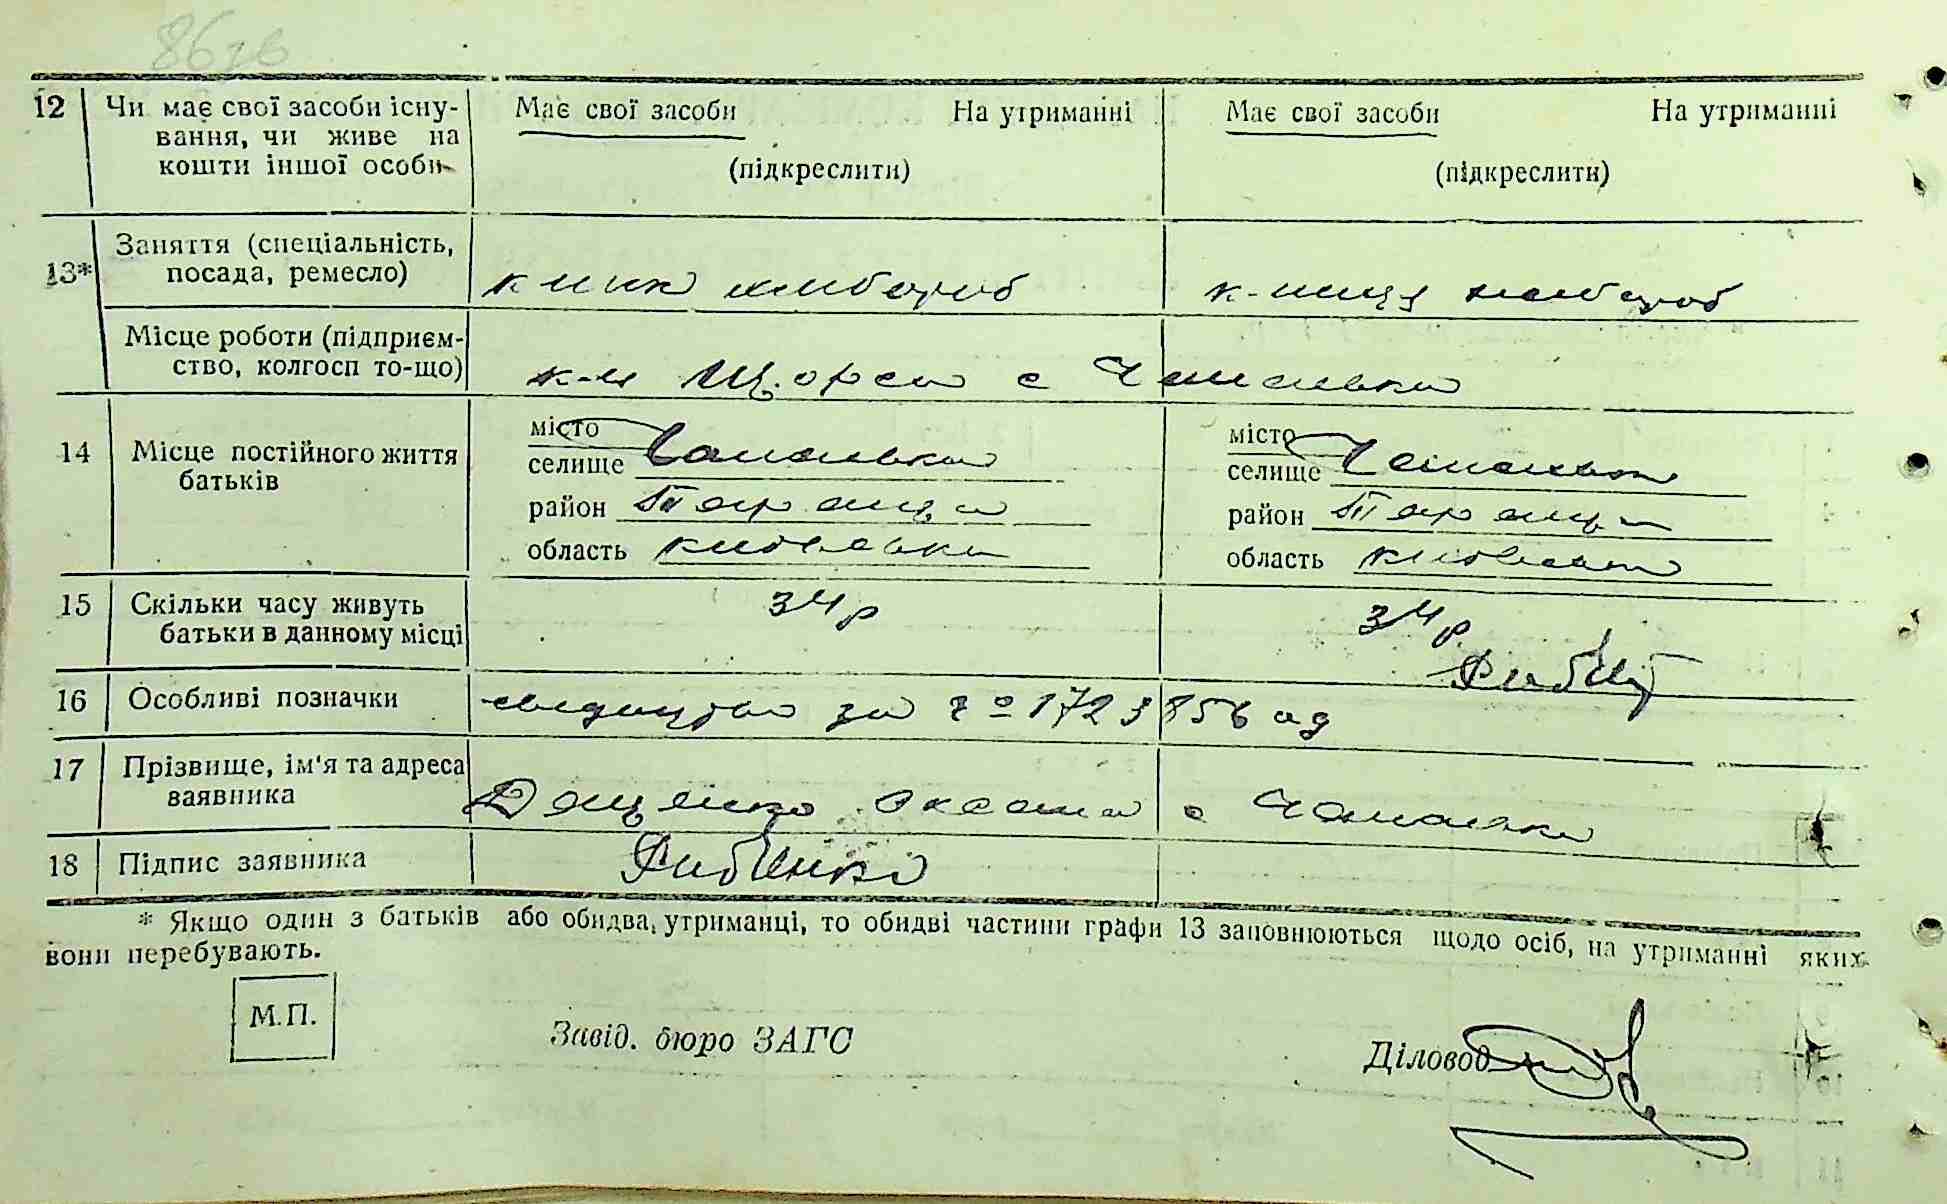 86зв
12 Чи має свої засоби існу-
вання, чи живе на
кошти іншої особи
Має свої засоби На утриманні
(підкреслити)
Має свої засоби На утриманні
(підкреслити)
13* Заняття (спеціальність,
посада, ремесло)
к-ник хлібороб
к-ниця хлібороб
Місце роботи (підприєм-
ство, колгосп то-що)
к-п Щорса с
14 Місце постійного життя
батьків
місто
селище
район Тараща
область київська
місто
селище
район Тараща
область київська
15 Скільки часу живуть
батьки в данному місці
34 р
34 р
16 Особливі позначки
свідоцтво за
17 Прізвище, ім'я та адреса
ваявника
Дещенко Оксана с
18 Підпис заявника
* Якщо один з батьків або обидва, утриманці, то обидві частини графи 13 заповнюються щодо осіб, на утриманні яких
вони перебувають.
М.П.
Завід. бюро ЗАГС
Діловод